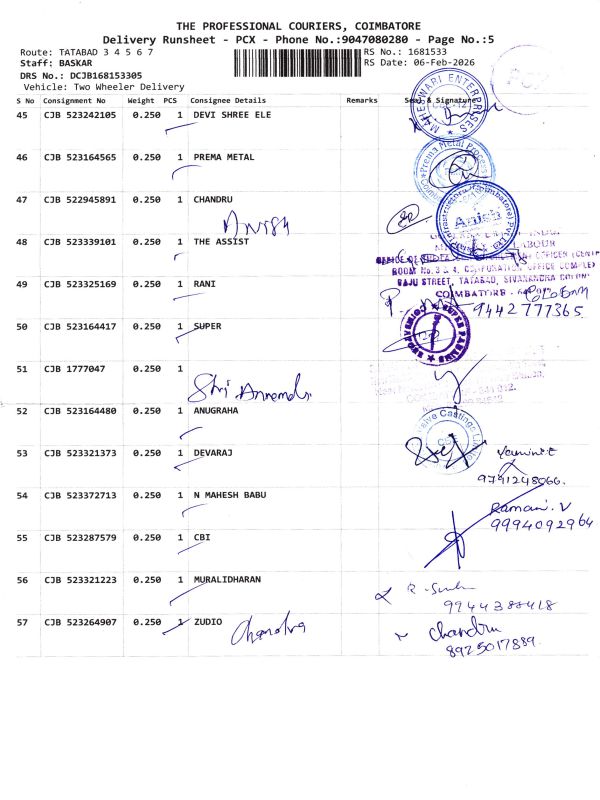 THE PROFESSIONAL COURIERS, COIMBATORE
Delivery Runsheet - PCX - Phone No.:9047080280 - Page No.:5
Route: TATABAD 3 4 5 6 7 RS No.: 1681533
Staff: BASKAR RS Date: 06-Feb-2026
DRS No.: DCJB168153305
Vehicle: Two Wheeler Delivery
S No Consignment No Weight PCS Consignee Details Remarks Seal & Signature
45 CJB 523242105 0.250 1 DEVI SHREE ELE
MAHESHWARI ENTERPRISES
46 CJB 523164565 0.250 1 PREMA METAL
Prema Metal Process
47 CJB 522945891 0.250 1 CHANDRU
Anish
48 CJB 523339101 0.250 1 THE ASSIST
LABOUR
ROOM No. 3 & 4, CORPORATION OFFICE COMPLEX
49 CJB 523325169 0.250 1 RANI
RAJU STREET, TATABAD, SIVANANDA COLONY
COIMBATORE
9442777365
50 CJB 523164417 0.250 1 SUPER
SUPER FABINS COIMBATORE
51 CJB 1777047 0.250 1
Shri Annamdr
52 CJB 523164480 0.250 1 ANUGRAHA
53 CJB 523321373 0.250 1 DEVARAJ
9791248066.
54 CJB 523372713 0.250 1 N MAHESH BABU
Ramani. V
9994092964
55 CJB 523287579 0.250 1 CBI
56 CJB 523321223 0.250 1 MURALIDHARAN
9944388418
57 CJB 523264907 0.250 1 ZUDIO
Chandru
8925017889.